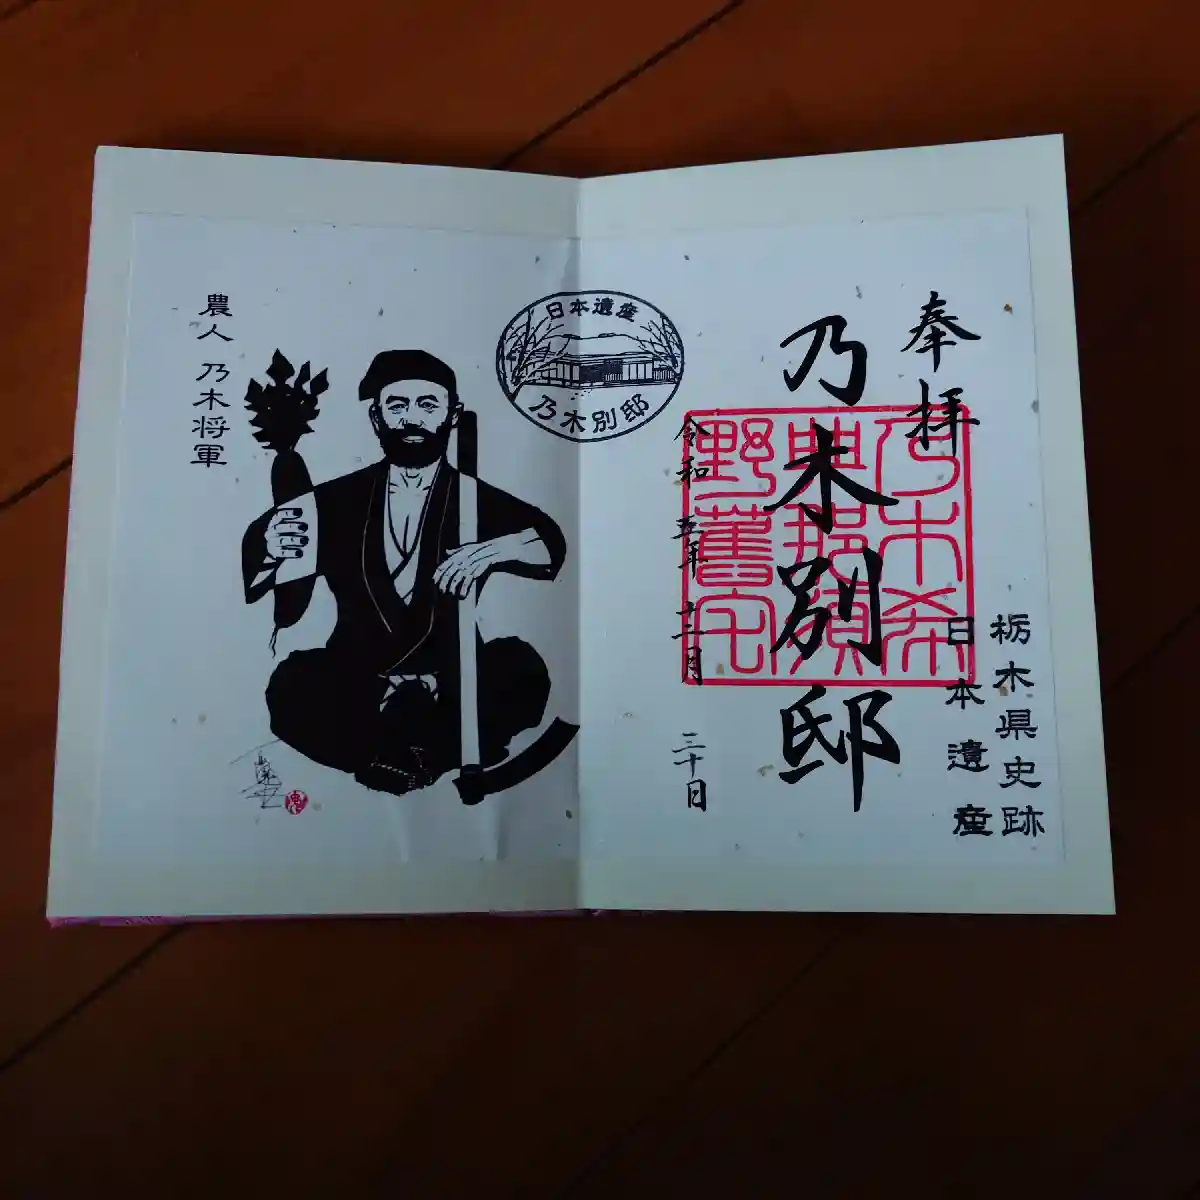 奉拝
乃木別邸
栃木県史跡
日本遺産
令和 五年 十二月 三十日
乃木希
典那須
野舊宅
日本遺産
乃木別邸
農人 乃木将軍